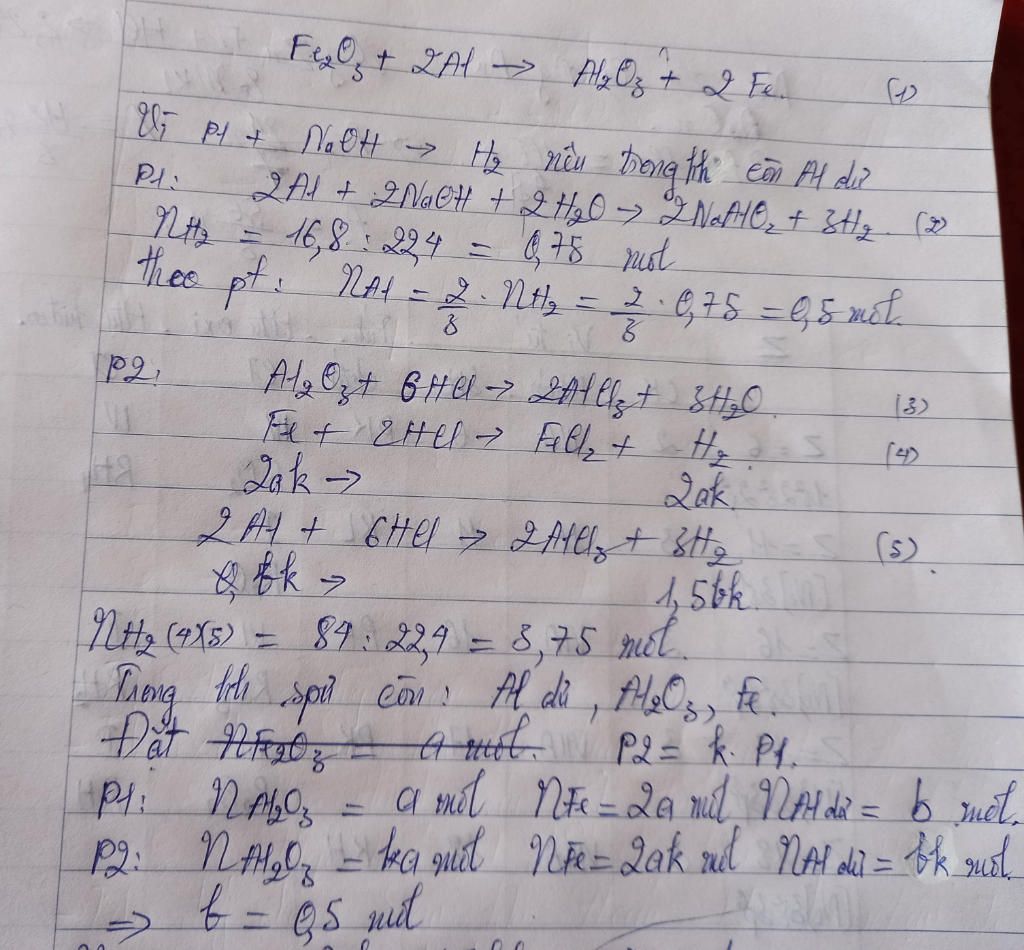 Fe₂O₃ + 2Al → Al₂O₃ + 2Fe. (1)
Vì P1 + NaOH → H₂ nên trong hh còn Al dư
P1: 2Al + 2NaOH + 2H₂O → 2NaAlO₂ + 3H₂. (2)
nH₂ = 16,8 : 22,4 = 0,75 mol
theo pt: nAl = 2/3 . nH₂ = 2/3 . 0,75 = 0,5 mol.
P2: Al₂O₃ + 6HCl → 2AlCl₃ + 3H₂O. (3)
Fe + 2HCl → FeCl₂ + H₂. (4)
2ak → 2ak.
2Al + 6HCl → 2AlCl₃ + 3H₂ (5).
bk → 1,5bk.
nH₂ (4)(5) = 84 : 22,4 = 3,75 mol.
Trong hh spư còn: Al dư, Al₂O₃, Fe.
Đặt nFe₂O₃ = a mol. P2 = k. P1.
P1: nAl₂O₃ = a mol nFe = 2a mol nAl dư = b mol.
P2: nAl₂O₃ = ka mol nFe = 2ak mol nAl dư = bk mol.
=> b = 0,5 mol